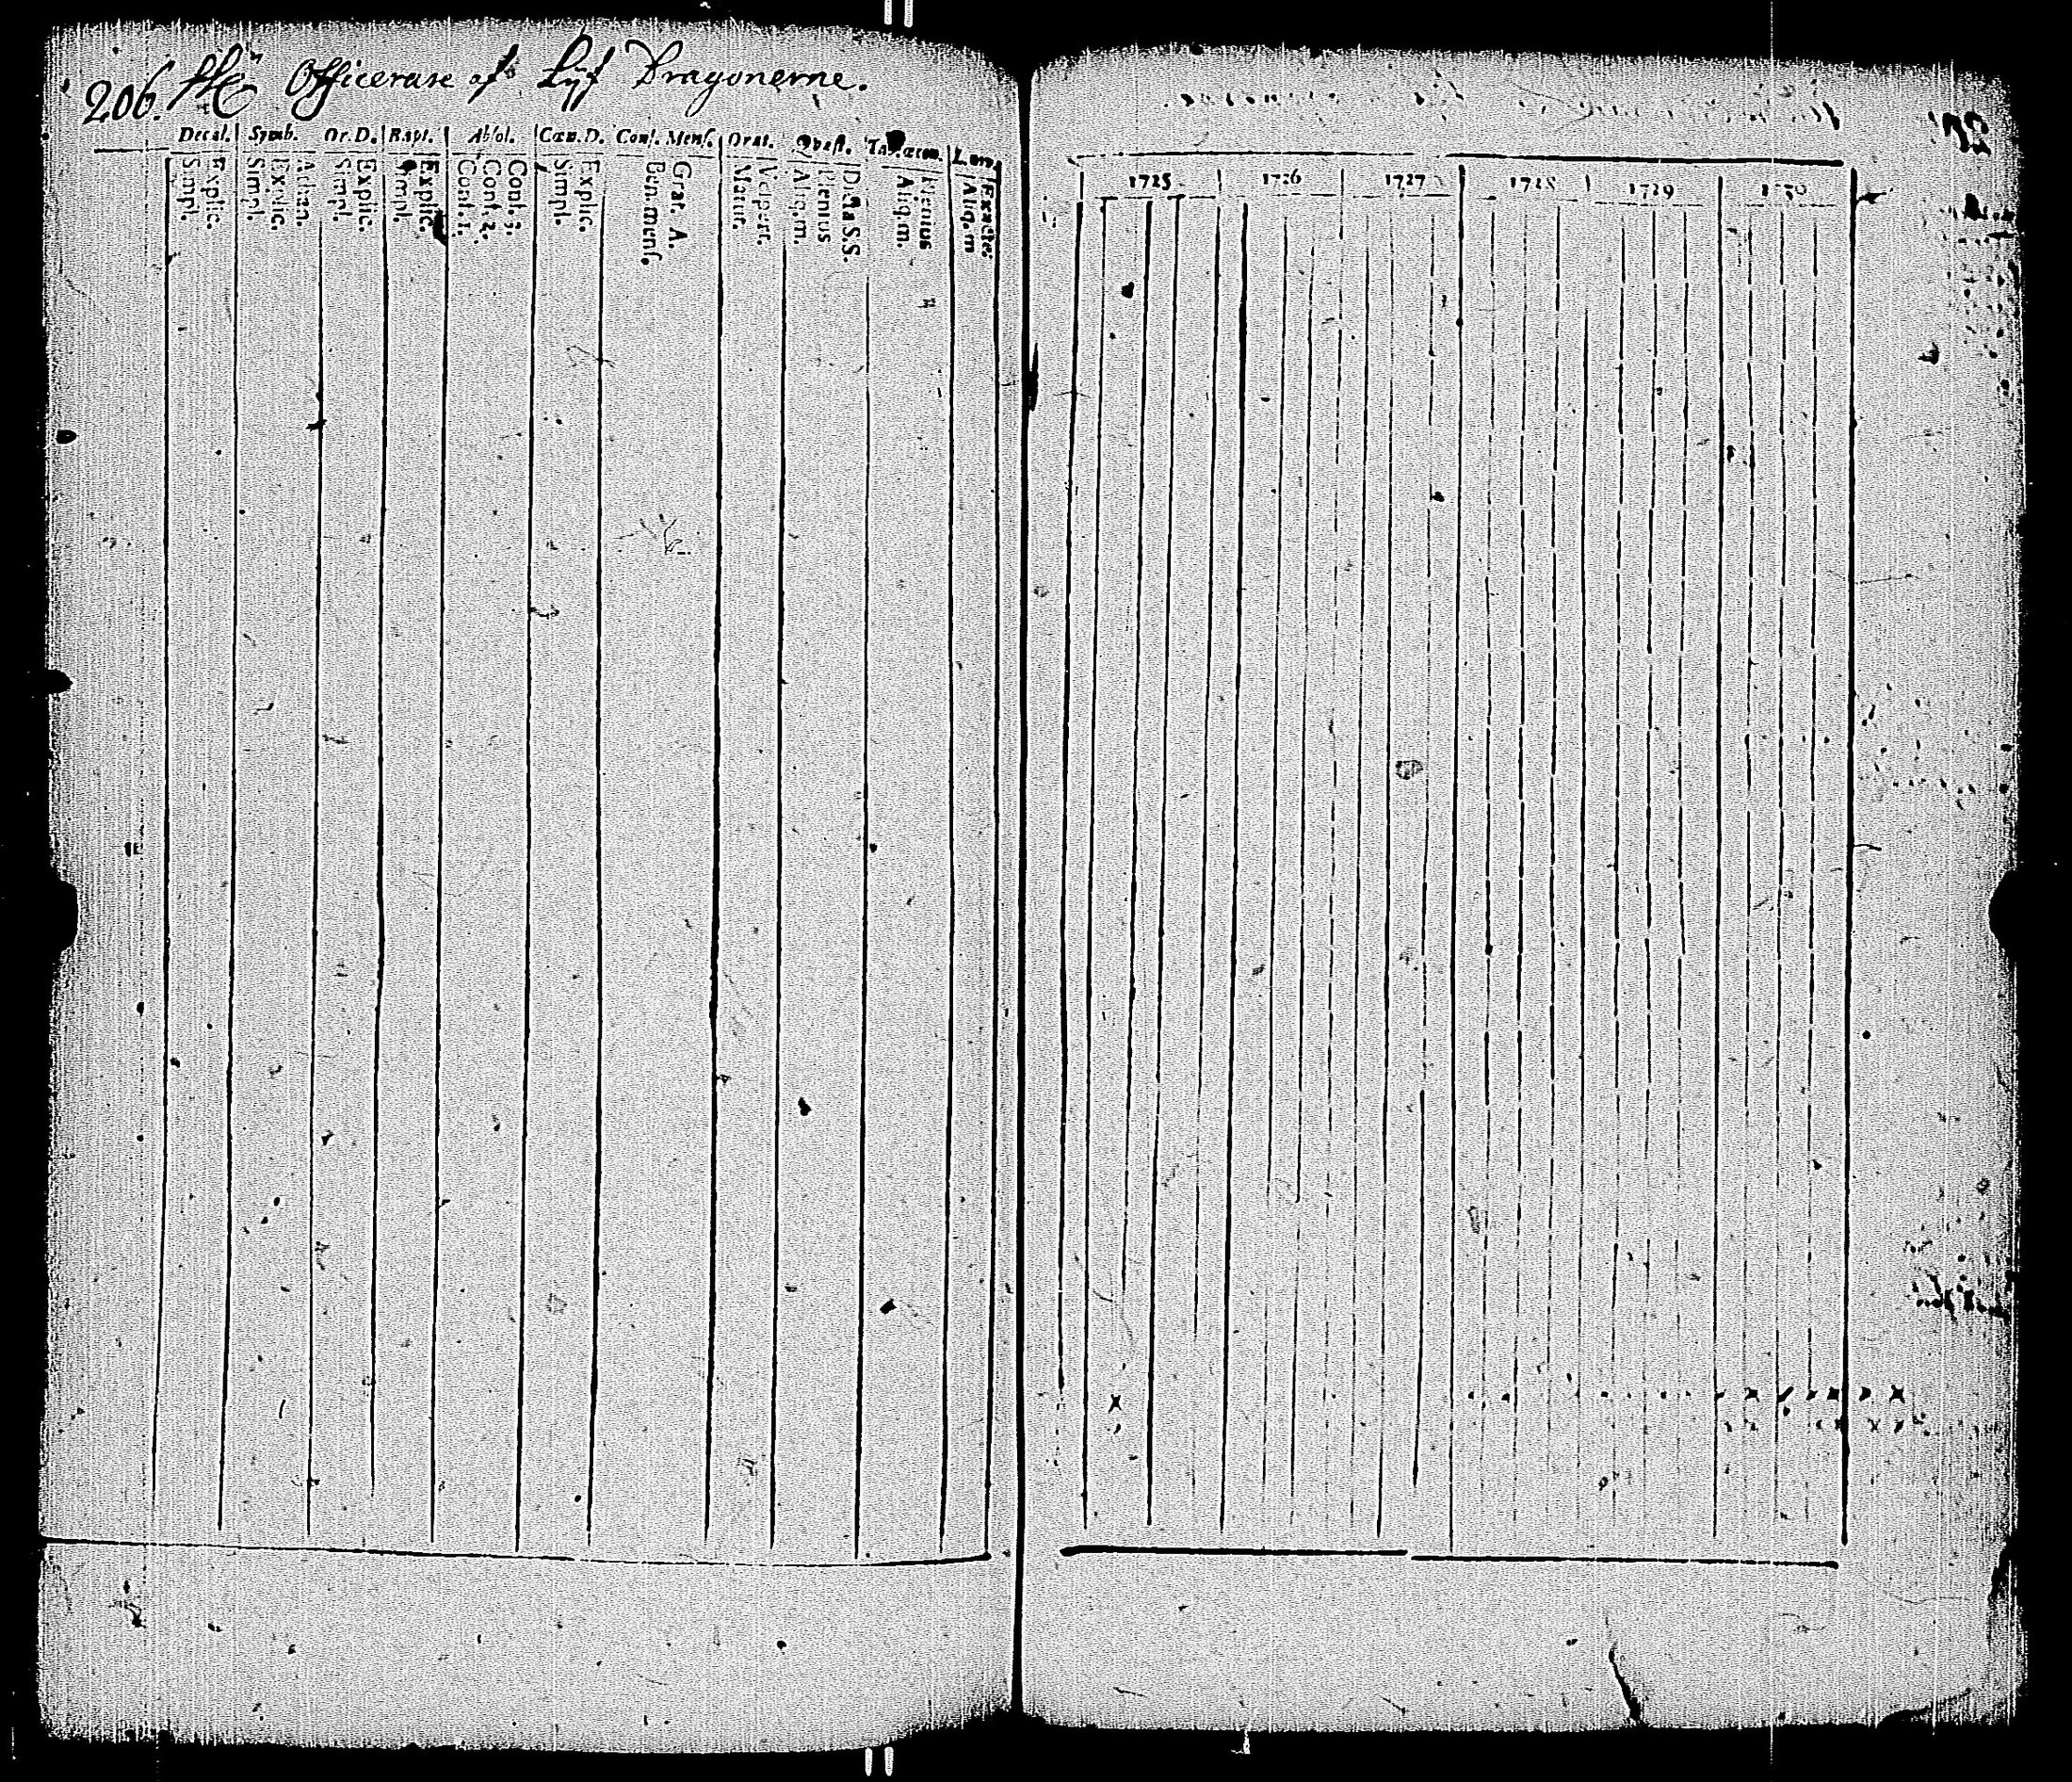 206. Hr Officerare af Lijf Dragonerne.
Decal. Symb. Or. D. Bapt. Absol. Cœn. D. Conf. Mens. Orat. Quæst. Tab. œcon.
Explic. Simpl.
Athan. Explic. Simpl.
Explic. Simpl.
Explic. Simpl.
Conf. 3. Conf. 2. Conf. 1.
Explic. Simpl.
Grat. A. Ben. mens.
Vesper. Matut.
Dicta S.S. Plenius Aliq. m.
Plenius Aliq. m.
Exacte. Aliq. m
1725 1726 1727 1728 1729 1730